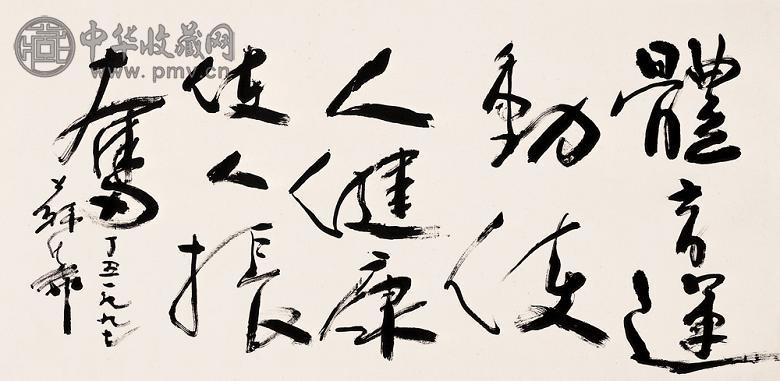 體育運
動使
人健康
使人振
奮
丁丑一九九七
中华收藏网
www.pmv.cn